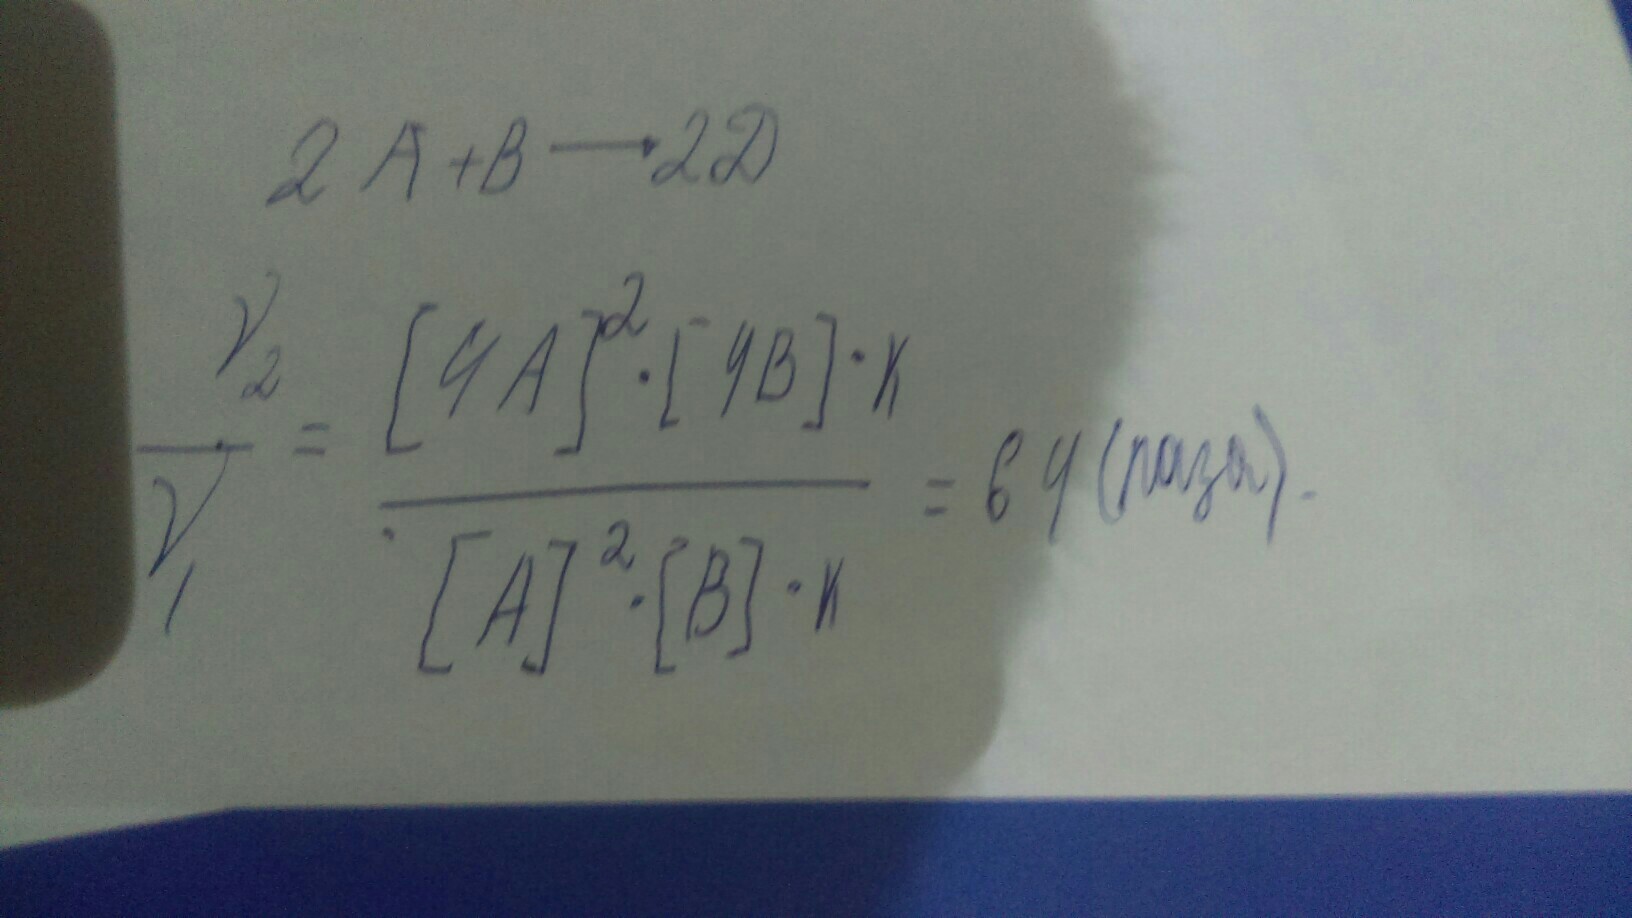 2A+B→2D
V₂/V₁ = [4A]²·[4B]·к / [A]²·[B]·к = 64 (раза).